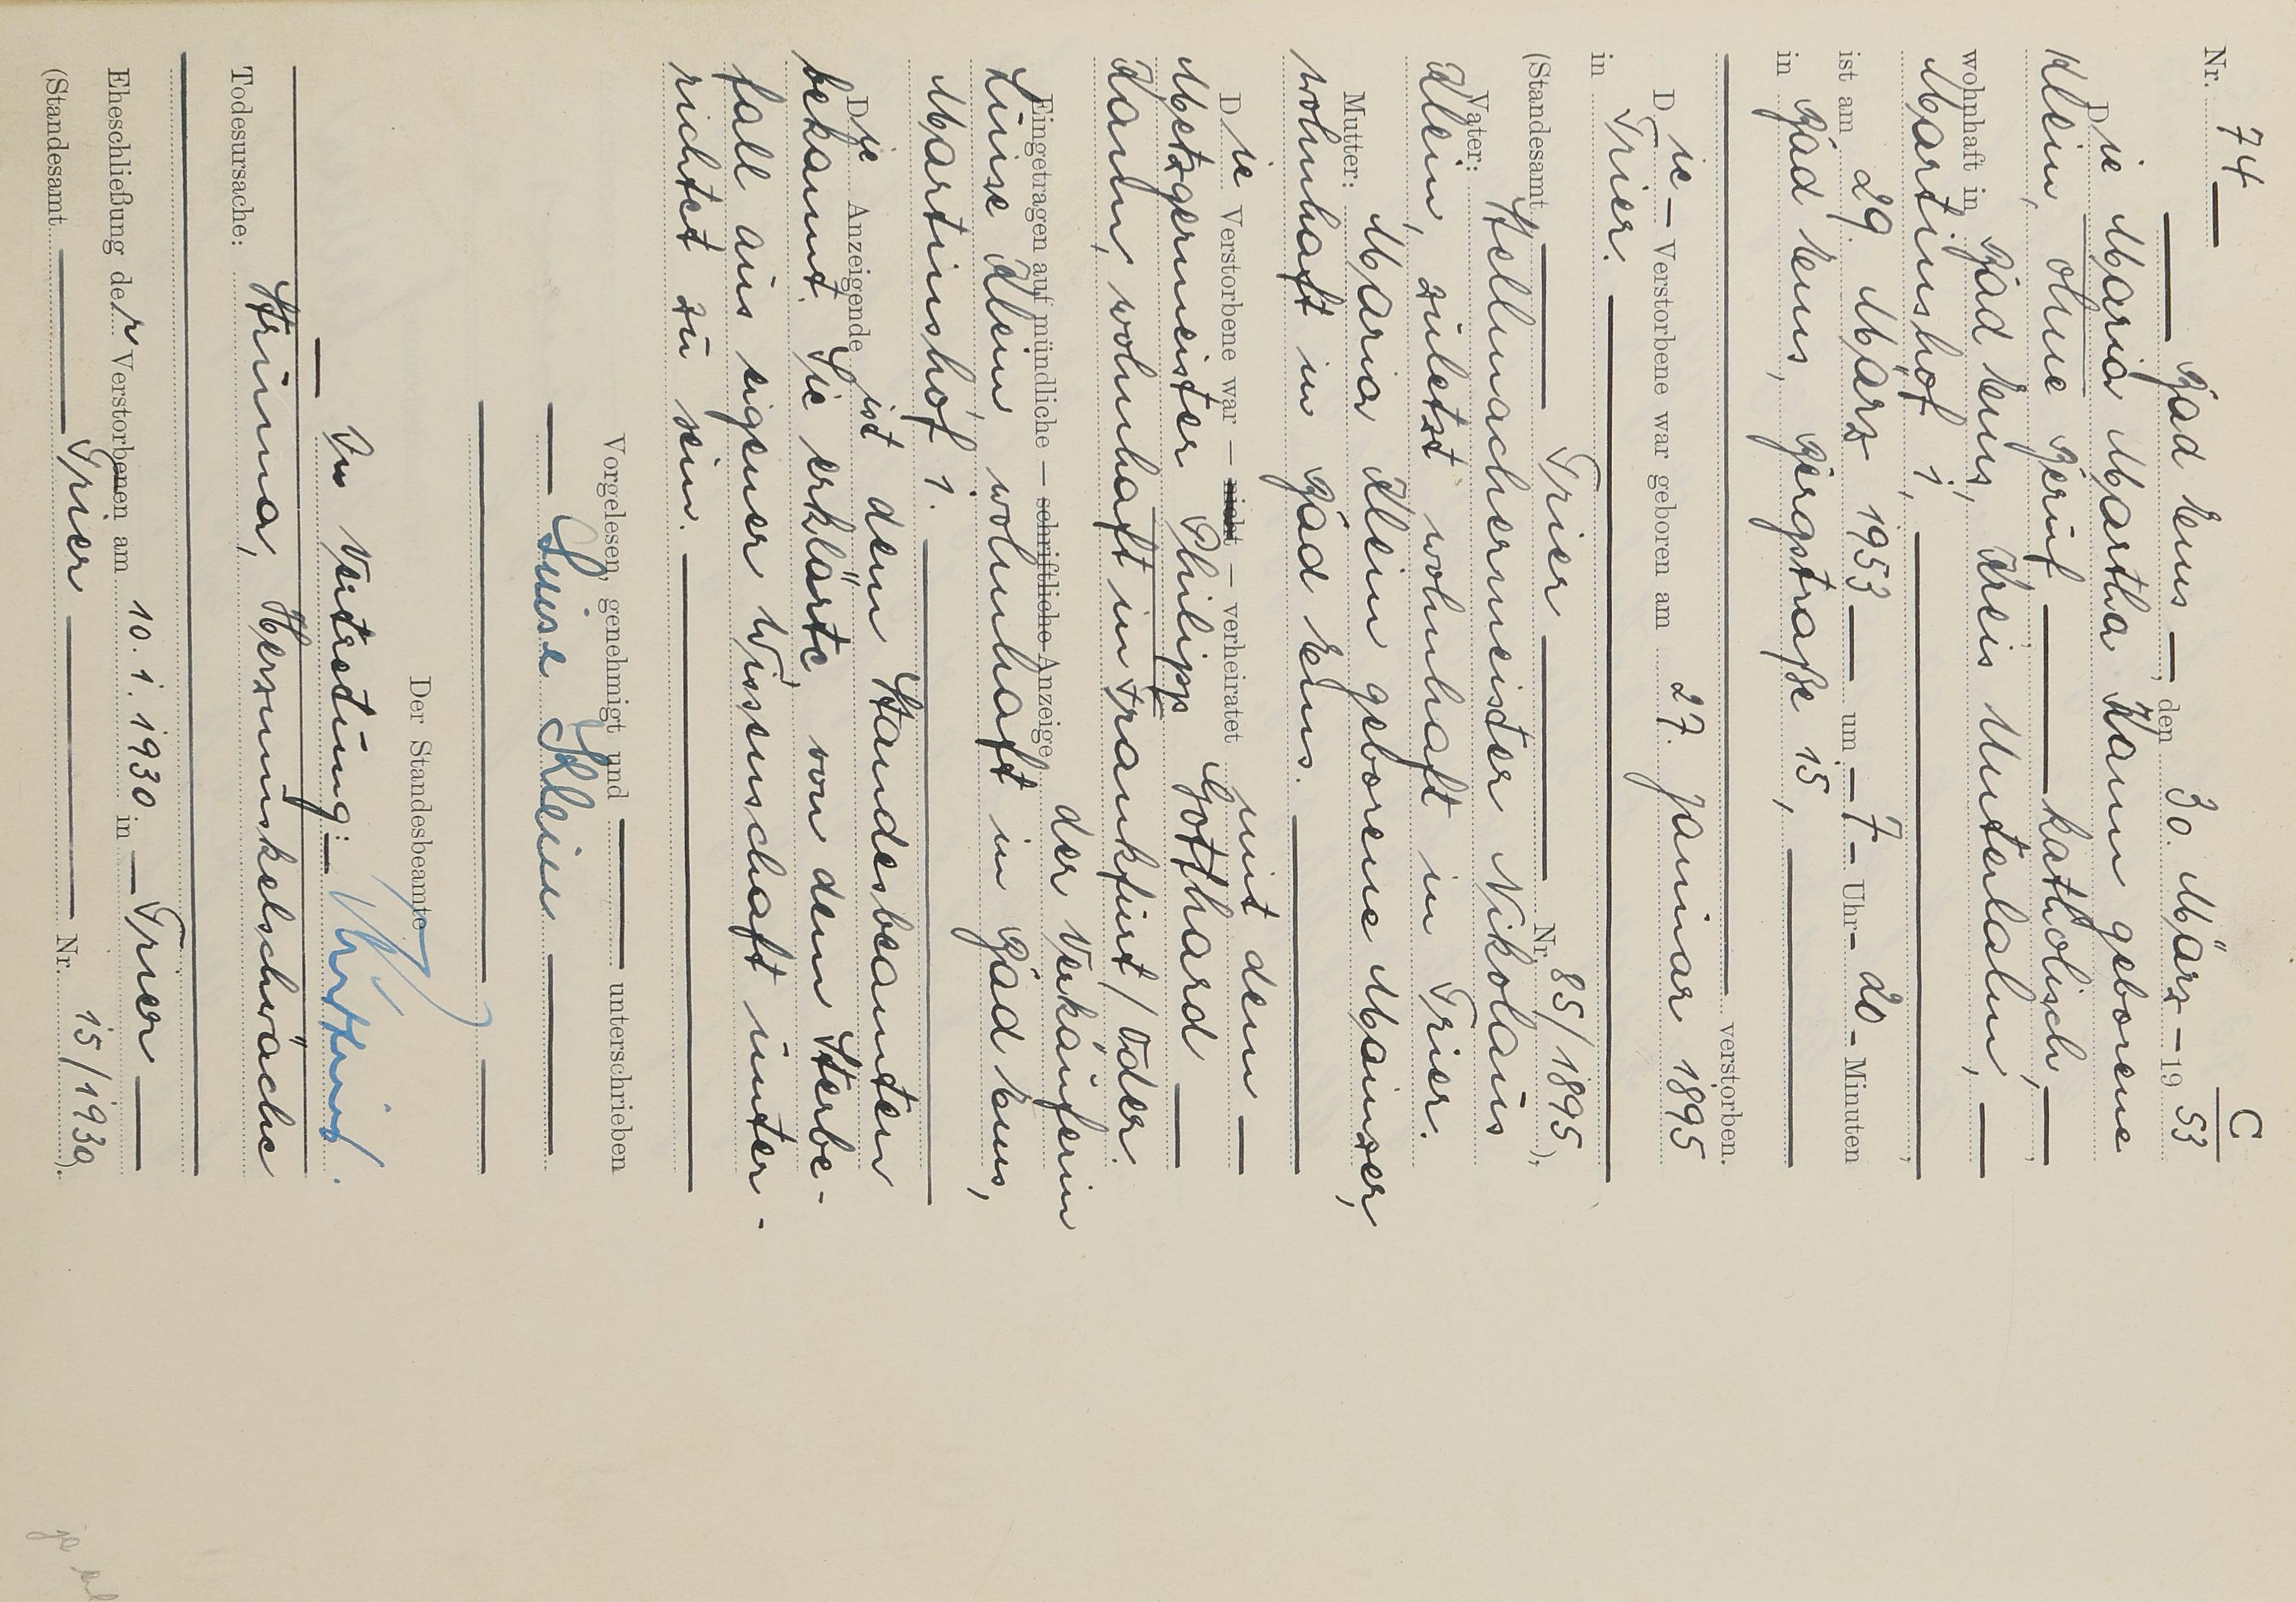 C
Nr. 74
Bad Ems, den 30. März 1953
Die Maria Martha Kann geborene
Klein, ohne Beruf katholisch,
wohnhaft in Bad Ems, Kreis Unterlahn,
Martinshof 1,
ist am 29. März 1953 um 7 Uhr 20 Minuten
in Bad Ems, Bergstraße 15,
verstorben.
Die Verstorbene war geboren am 27. Januar 1895
in Trier.
(Standesamt Trier Nr. 85/1895),
Vater: Stellmachermeister Nikolaus
Klein, zuletzt wohnhaft in Trier.
Mutter: Maria Klein geborene Mainzer,
wohnhaft in Bad Ems.
Die Verstorbene war — nicht — verheiratet mit dem
Metzgermeister Philipp Gotthard
Kann, wohnhaft in Frankfurt/Oder.
Eingetragen auf mündliche — schriftliche Anzeige der Verkäuferin
Luise Klein wohnhaft in Bad Ems,
Martinshof 1.
Die Anzeigende ist dem Standesbeamten
bekannt. Sie erklärte, von dem Sterbe-
fall aus eigener Wissenschaft unter-
richtet zu sein.
Vorgelesen, genehmigt und unterschrieben
Luise Klein
Der Standesbeamte
In Vertretung:
Todesursache: Struma, Herzmuskelschwäche
Eheschließung der Verstorbenen am 10. 1. 1930 in Trier
(Standesamt Trier Nr. 15/1930).